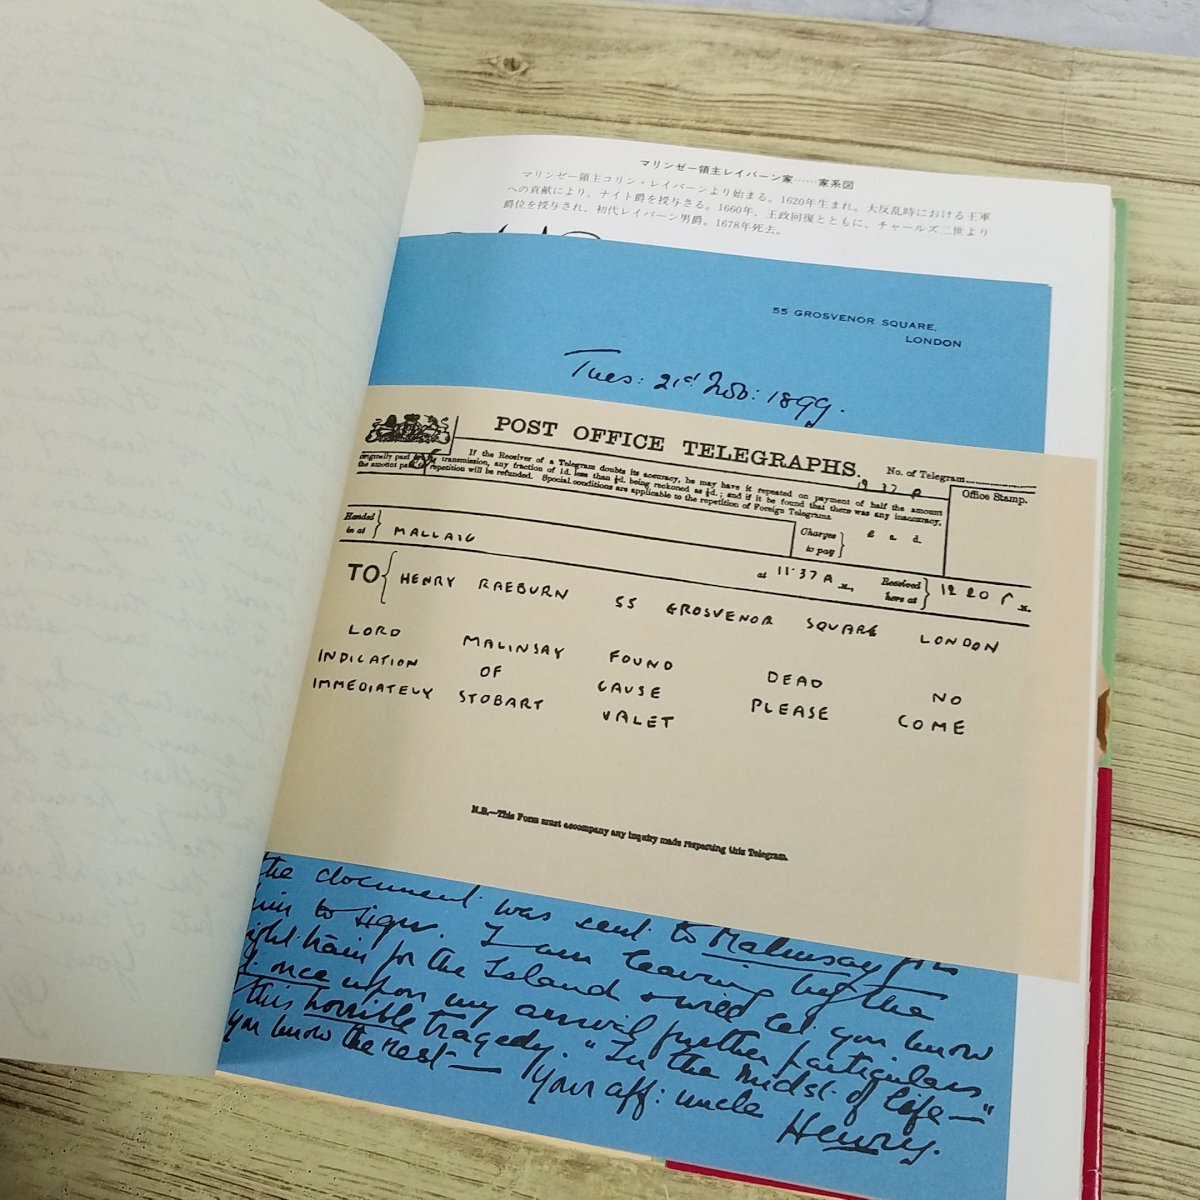 マリンゼー領主レイバーン家……家系図
マリンゼー領主コリン・レイバーンより始まる。1620年生まれ。大反乱時における王軍
への貢献により、ナイト爵を授与さる。1660年、王政回復とともに、チャールズ二世より
爵位を授与され、初代レイバーン男爵。1678年死去。
55 GROSVENOR SQUARE,
LONDON
Tues: 21st Nov: 1899.
POST OFFICE TELEGRAPHS.
No. of Telegram
If the Receiver of a Telegram doubts its accuracy, he may have it repeated on payment of half the amount
originally paid for its transmission, any fraction of 1d. less than ½d. being reckoned as ½d.; and if it be found that there was any inaccuracy,
the amount paid for repetition will be refunded. Special conditions are applicable to the repetition of Foreign Telegrams.
Office Stamp.
Handed in at } MALLAIG
Charges to pay } £ s. d.
at 11·37 A M., Received here at } 12 20 P M.
TO { HENRY RAEBURN 55 GROSVENOR SQUARE LONDON
LORD MALINSAY FOUND DEAD NO
INDICATION OF CAUSE PLEASE COME
IMMEDIATELY STOBART VALET
N.B.—This Form must accompany any inquiry made respecting this Telegram.
the document was sent to Malinsay for
him to sign. I am leaving by the
night train for the Island & will let you know
at once upon my arrival further particulars
this horrible tragedy. "In the midst of life—"
you know the rest — Your aff: uncle
Henry.